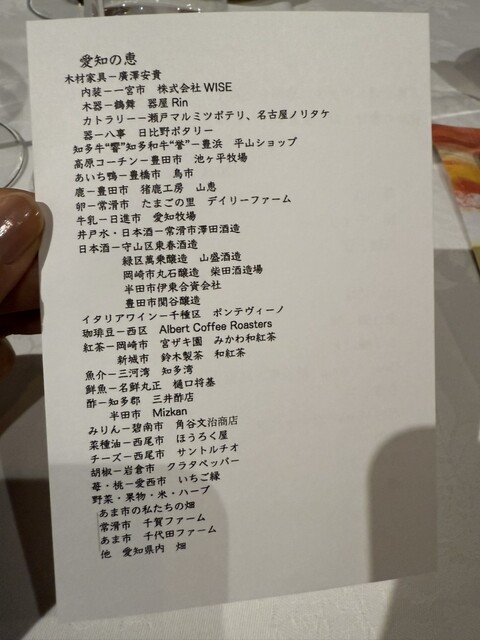 愛知の恵
木材家具－廣澤安貴
内装－一宮市　株式会社 WISE
木器－鶴舞　器屋 Rin
カトラリー－瀬戸マルミツポテリ、名古屋ノリタケ
器－八事　日比野ポタリー
知多牛“響”知多和牛“誉”－豊浜　平山ショップ
高原コーチン－豊田市　池ヶ平牧場
あいち鴨－豊橋市　鳥市
鹿－豊田市　猪鹿工房　山恵
卵－常滑市　たまごの里　デイリーファーム
牛乳－日進市　愛知牧場
井戸水・日本酒－常滑市澤田酒造
日本酒－守山区東春酒造
緑区萬乗醸造　山盛酒造
岡崎市丸石醸造　柴田酒造場
半田市伊東合資会社
豊田市関谷醸造
イタリアワイン－千種区　ポンテヴィーノ
珈琲豆－西区　Albert Coffee Roasters
紅茶－岡崎市　宮ザキ園　みかわ和紅茶
新城市　鈴木製茶　和紅茶
魚介－三河湾　知多湾
鮮魚－名鮮丸正　樋口将基
酢－知多郡　三井酢店
半田市　Mizkan
みりん－碧南市　角谷文治商店
菜種油－西尾市　ほうろく屋
チーズ－西尾市　サントルチオ
胡椒－岩倉市　クラタペッパー
苺・桃－愛西市　いちご縁
野菜・果物・米・ハーブ
あま市の私たちの畑
常滑市　千賀ファーム
あま市　千代田ファーム
他　愛知県内　畑